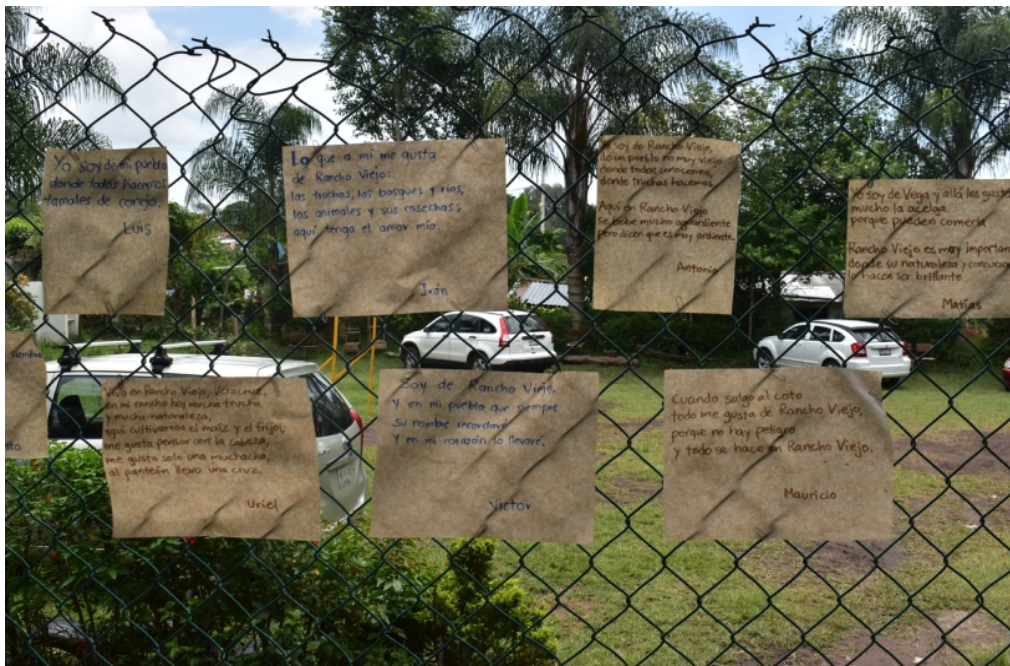 Yo soy de mi pueblo
donde todos hacemos
tamales de conejo.
Luis
Lo que a mi me gusta
de Rancho Viejo:
las truchas, los bosques y ríos,
los animales y sus cosechas;
aquí tengo el amor mío.
Iván
Yo soy de Rancho Viejo,
de un pueblo no muy viejo
donde todos conocemos,
donde truchas hacemos.
Aquí en Rancho Viejo
se bebe mucho aguardiente
pero dicen que es muy ardiente.
Antonio
Yo soy de Vega y allá les gusta
mucho la acelga
porque pueden comerla
Rancho Viejo es muy importan
donde su naturaleza y
la hacen ser brillante
Matías
siembro
Vivo en Rancho Viejo, Veracruz,
en mi rancho hay mucha trucha
y mucha naturaleza,
aquí cultivamos el maíz y el frijol,
me gusta pensar con la cabeza,
me gusta solo una muchacha,
al panteón llevo una cruz.
Uriel
Soy de Rancho Viejo.
Y en mi pueblo que siempre
su nombre recordaré
Y en mi corazón lo llevaré.
Victor
Cuando salgo al coto
todo me gusta de Rancho Viejo,
porque no hay peligro
y todo se hace en Rancho Viejo.
Mauricio